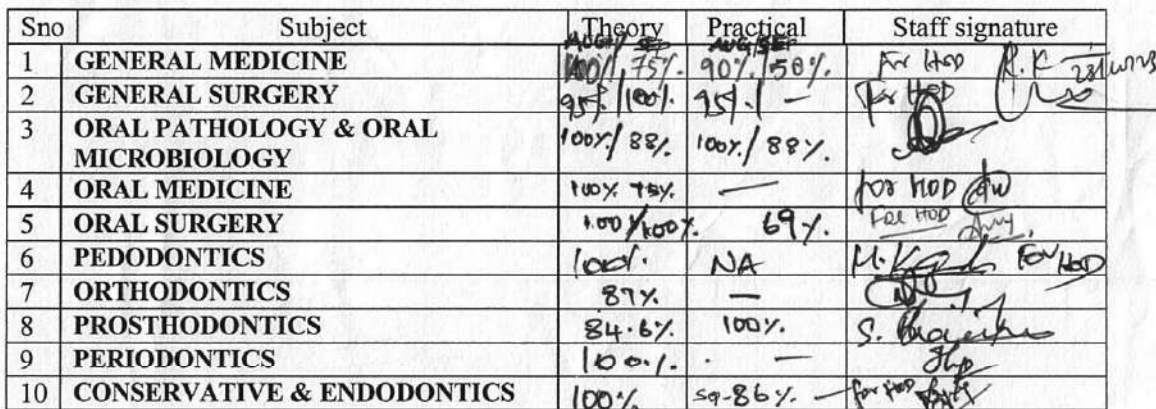 Sno Subject Theory Practical Staff signature
AUG/ SEP AUG/SEP
1 GENERAL MEDICINE 100%/75%. 90%/50%. For HOD R.K
2 GENERAL SURGERY 95%/100%. 95%/ — For HOD
3 ORAL PATHOLOGY & ORAL MICROBIOLOGY 100%/88%. 100%/88%.
4 ORAL MEDICINE 100% 75% — for HOD
5 ORAL SURGERY 100/100%. 69%. For HOD
6 PEDODONTICS 100%. NA For HOD
7 ORTHODONTICS 89%. —
8 PROSTHODONTICS 84.6%. 100%. S.
9 PERIODONTICS 100%. —
10 CONSERVATIVE & ENDODONTICS 100%. 86%. — for HOD